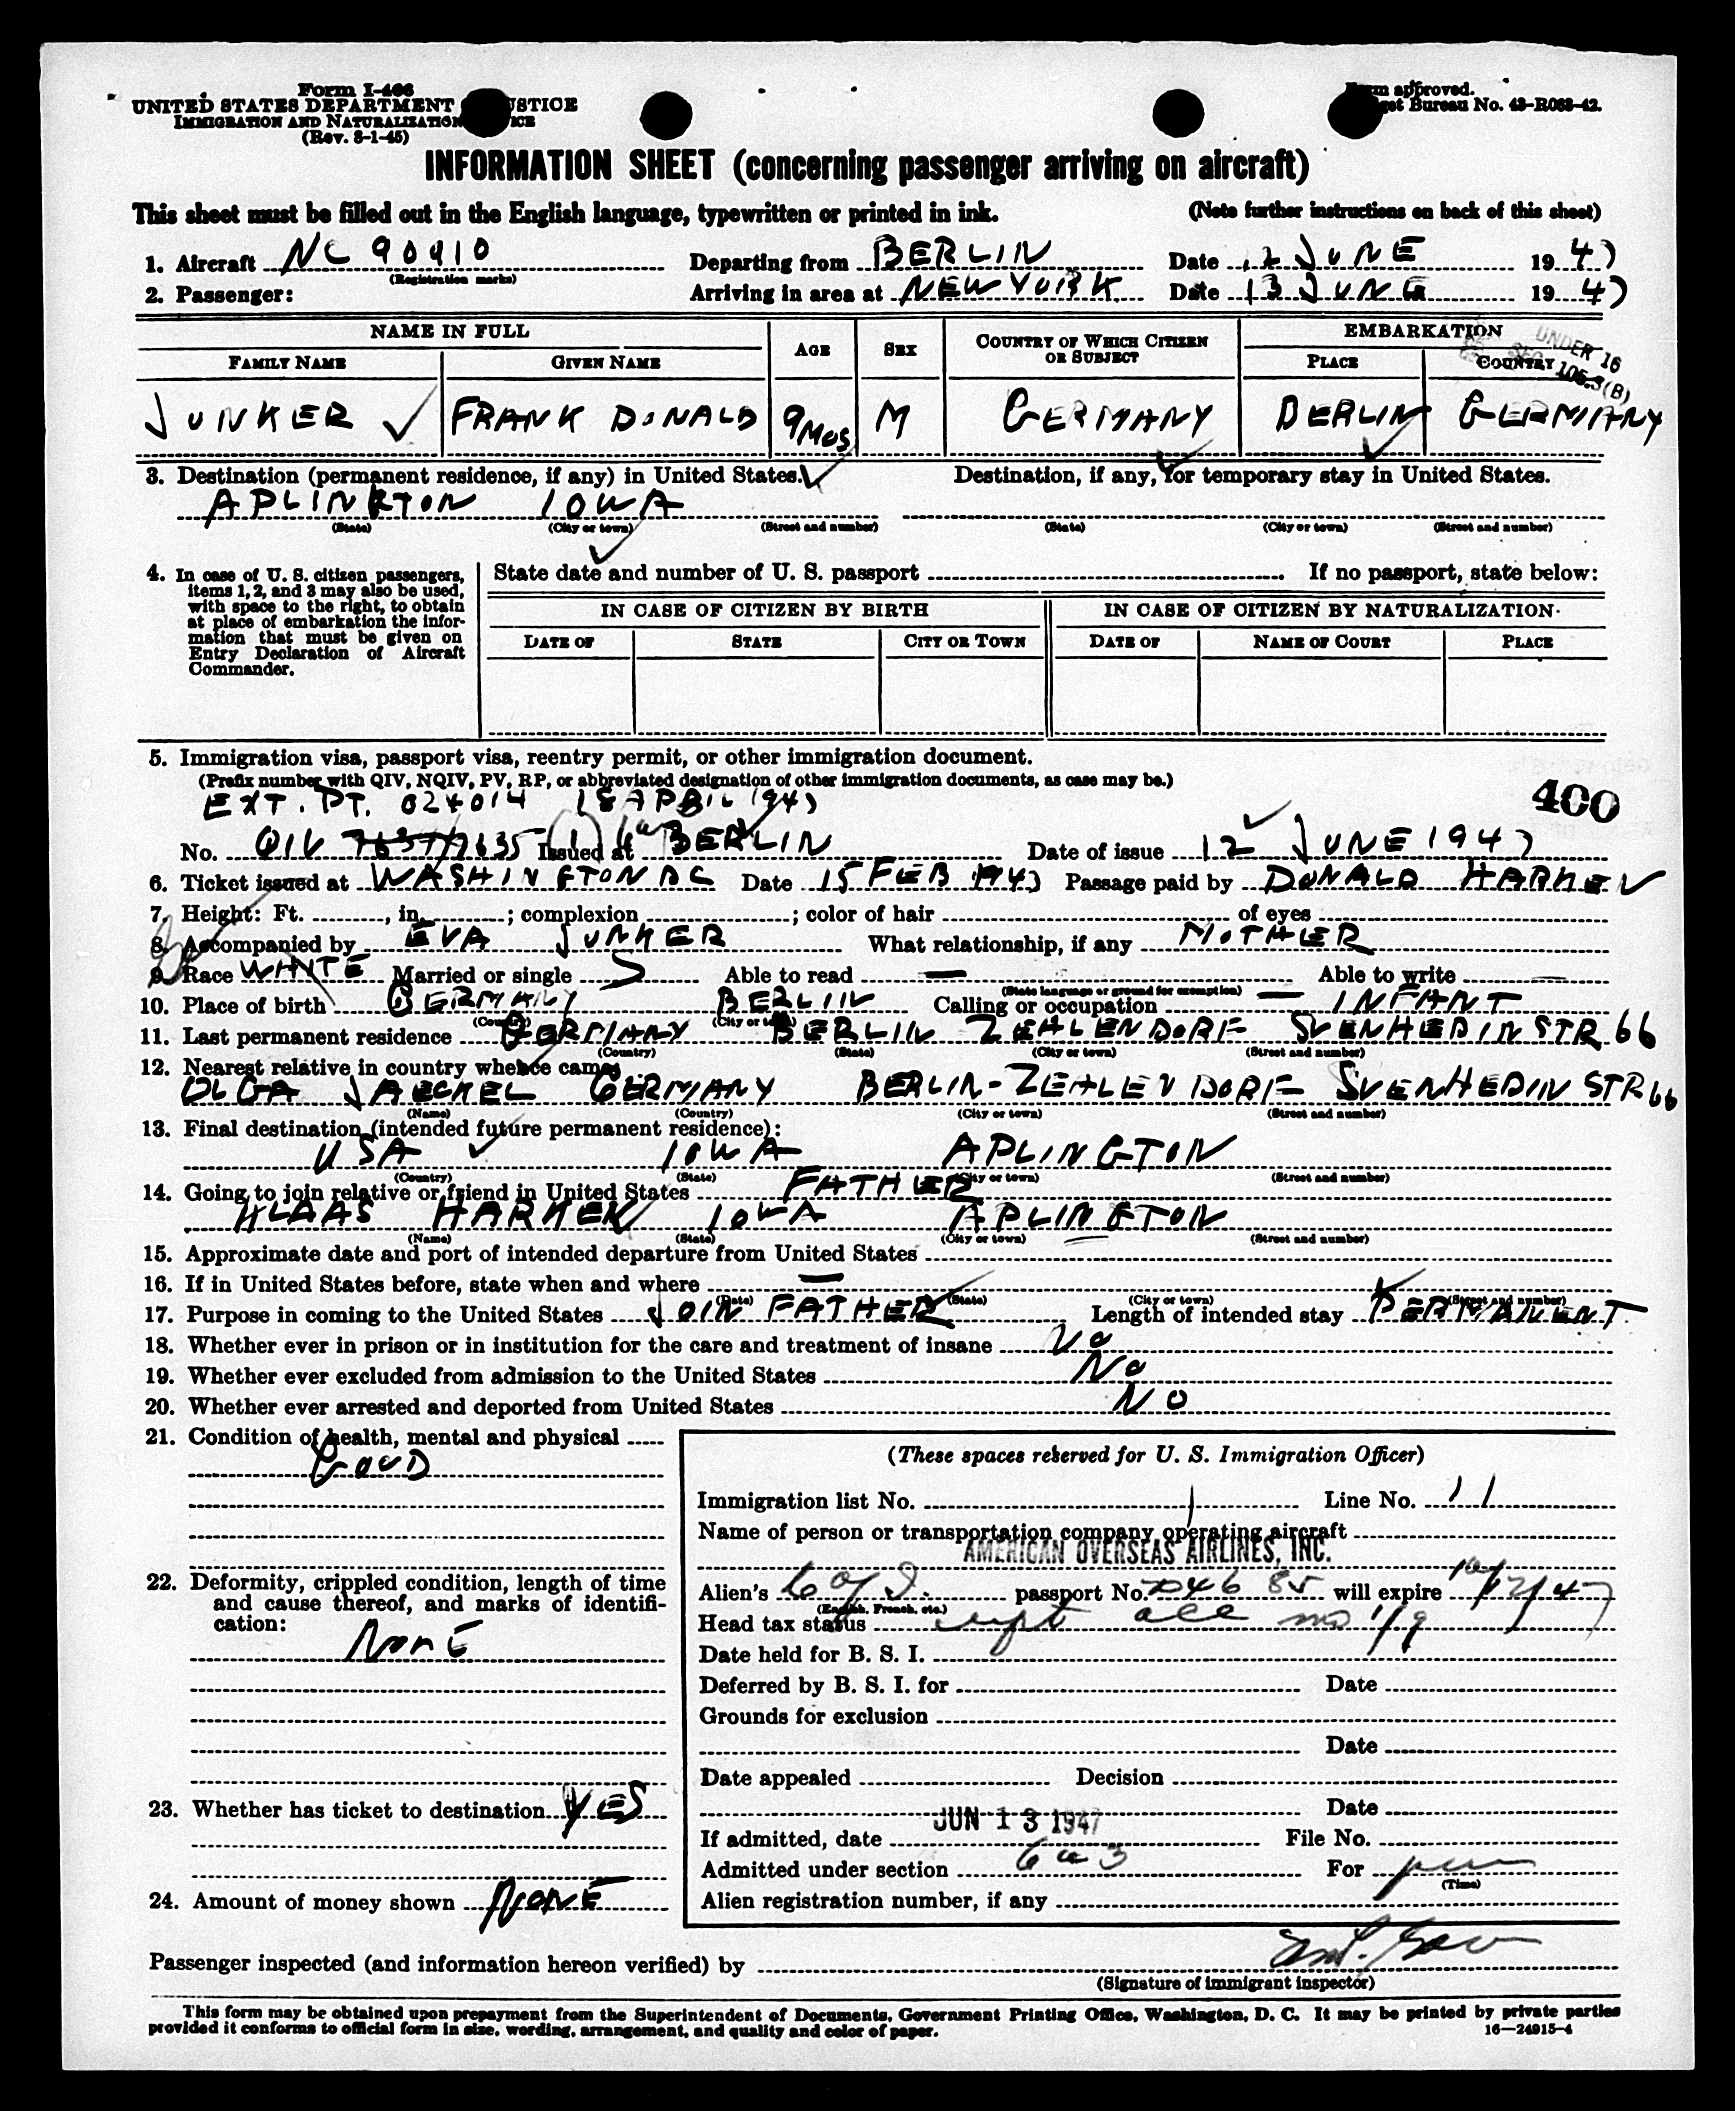 Form I-466
UNITED STATES DEPARTMENT JUSTICE
IMMIGRATION AND NATURALIZATION
(Rev. 3-1-45)
Form approved.
Budget Bureau No. 43-R083-42.
INFORMATION SHEET (concerning passenger arriving on aircraft)
This sheet must be filled out in the English language, typewritten or printed in ink. (Note further instructions on back of this sheet)
1. Aircraft NC 90910 Departing from BERLIN Date 12 JUNE 1947
(Registration marks)
2. Passenger: Arriving in area at NEW YORK Date 13 JUNE 1947
NAME IN FULL AGE SEX COUNTRY OF WHICH CITIZEN OR SUBJECT EMBARKATION
FAMILY NAME GIVEN NAME PLACE COUNTRY
UNDER 16
SEC 105.3(B)
JUNKER FRANK DONALD 9 MOS M GERMANY BERLIN GERMANY
3. Destination (permanent residence, if any) in United States. Destination, if any, for temporary stay in United States.
APLINGTON IOWA
(State) (City or town) (Street and number) (State) (City or town) (Street and number)
4. In case of U. S. citizen passengers, items 1, 2, and 3 may also be used, with space to the right, to obtain at place of embarkation the information that must be given on Entry Declaration of Aircraft Commander.
State date and number of U. S. passport If no passport, state below:
IN CASE OF CITIZEN BY BIRTH IN CASE OF CITIZEN BY NATURALIZATION
DATE OF STATE CITY OR TOWN DATE OF NAME OF COURT PLACE
5. Immigration visa, passport visa, reentry permit, or other immigration document.
(Prefix number with QIV, NQIV, PV, RP, or abbreviated designation of other immigration documents, as case may be.)
400
EXT. PT. 024014 18 APRIL 1947
No. QIV 7635 Issued at BERLIN Date of issue 12 JUNE 1947
6. Ticket issued at WASHINGTON DC Date 15 FEB 1947 Passage paid by DONALD HARKEN
7. Height: Ft. , in. ; complexion ; color of hair of eyes
8. Accompanied by EVA JUNKER What relationship, if any MOTHER
9. Race WHITE Married or single S Able to read — Able to write —
(State language or ground for exemption)
10. Place of birth GERMANY BERLIN Calling or occupation — INFANT
(Country) (City or town)
11. Last permanent residence GERMANY BERLIN ZEHLENDORF SVENHEDIN STR 66
(Country) (State) (City or town) (Street and number)
12. Nearest relative in country whence came:
OLGA JAECKEL GERMANY BERLIN-ZEHLENDORF SVENHEDIN STR 66
(Name) (Country) (City or town) (Street and number)
13. Final destination (intended future permanent residence):
USA IOWA APLINGTON
(Country) (State) (City or town) (Street and number)
14. Going to join relative or friend in United States FATHER
KLAAS HARKEN IOWA APLINGTON
(Name) (State) (City or town) (Street and number)
15. Approximate date and port of intended departure from United States
16. If in United States before, state when and where —
(Date) (State) (City or town) (Street and number)
17. Purpose in coming to the United States JOIN FATHER Length of intended stay PERMANENT
18. Whether ever in prison or in institution for the care and treatment of insane NO
19. Whether ever excluded from admission to the United States NO
20. Whether ever arrested and deported from United States NO
21. Condition of health, mental and physical
GOOD
22. Deformity, crippled condition, length of time and cause thereof, and marks of identification:
NONE
23. Whether has ticket to destination YES
24. Amount of money shown NONE
(These spaces reserved for U. S. Immigration Officer)
Immigration list No. 1 Line No. 11
Name of person or transportation company operating aircraft
AMERICAN OVERSEAS AIRLINES, INC.
Alien's passport No. will expire
(English, French, etc.)
Head tax status
Date held for B. S. I.
Deferred by B. S. I. for Date
Grounds for exclusion
Date
Date appealed Decision
Date
If admitted, date JUN 13 1947 File No.
Admitted under section 6 a 3 For per
(Time)
Alien registration number, if any
Passenger inspected (and information hereon verified) by
(Signature of immigrant inspector)
This form may be obtained upon prepayment from the Superintendent of Documents, Government Printing Office, Washington, D. C. It may be printed by private parties
provided it conforms to official form in size, wording, arrangement, and quality and color of paper. 16—24915-4